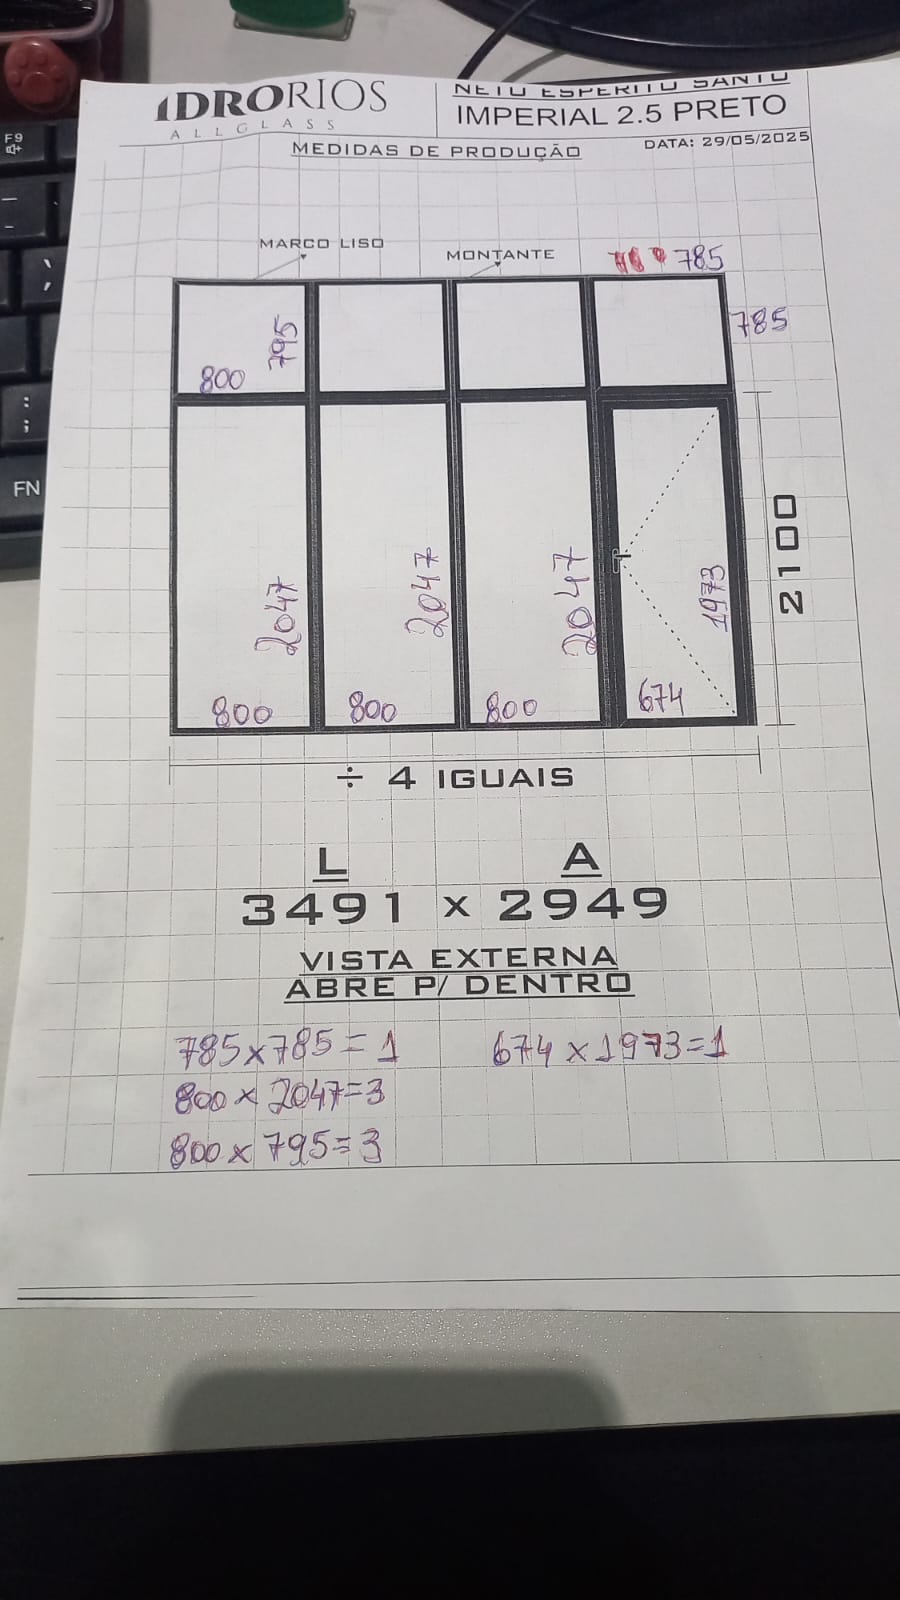 IDRORIOS
ALLGLASS
NETO ESPERITO SANTO
IMPERIAL 2.5 PRETO
MEDIDAS DE PRODUÇÃO
DATA: 29/05/2025
MARCO LISO
MONTANTE
785
785
795
800
2047
2047
2047
1973
2100
800
800
800
674
÷ 4 IGUAIS
L A
3491 x 2949
VISTA EXTERNA
ABRE P/ DENTRO
785x785=1 674x1973=1
800x2047=3
800x795=3
F9
FN